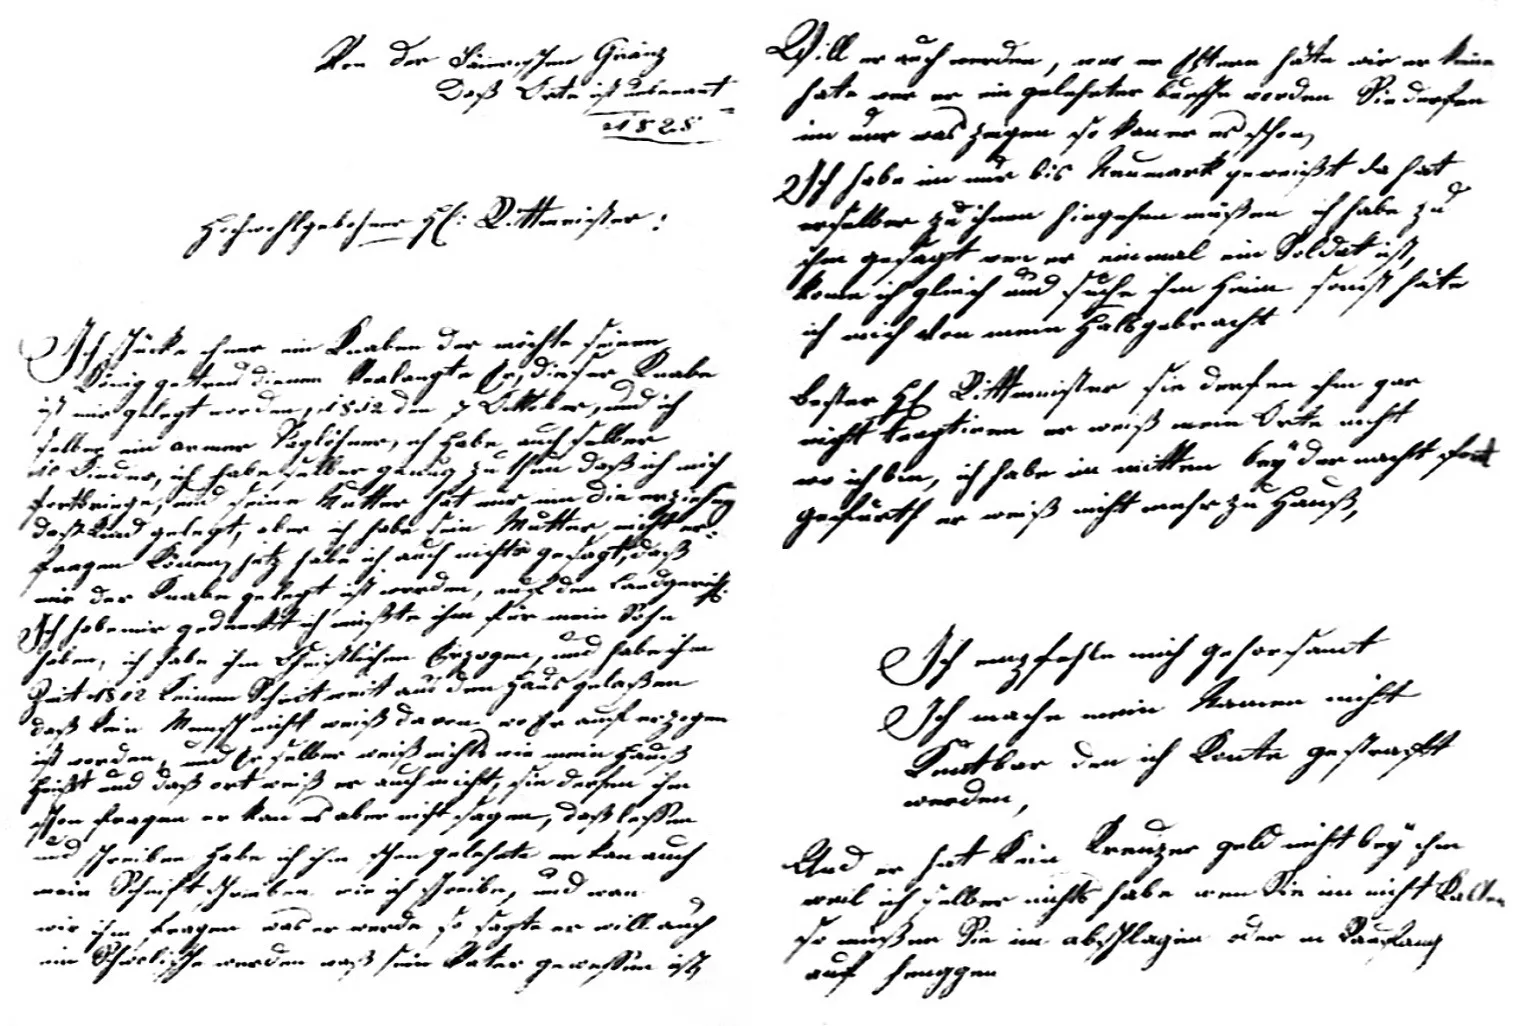 Von der Bäierischen Gränz
Daß Orte ist unbenant
1828
Hochwohlgebohner Hr: Rittmeister!
Ich schücke ihner ein Knaben der möchte seinen
König getreu dienen Verlangte Er, dieser Knabe
ist mir gelegt worden, 1812 den 7 Ocktober, und ich
selber ein armer Taglöhner, ich habe auch selber
10 Kinder, ich habe selber genug zu thun daß ich mich
fortbringe, und seine Mutter hat mir um die erziehung
daß Kind gelegt, aber ich habe sein Mutter nicht er-
fragen Könen, jetz habe ich auch nichts gesagt, daß
mir der Knabe gelegt ist worden, auf den Landgericht.
Ich habe mir gedenckt ich müßte ihm für mein Sohn
haben, ich habe ihm Christlichen Erzogen, und habe ihm
Zeit 1812 Keinen Schrit weit aus den Haus gelaßen
daß Kein Mensch nicht weiß davon wo Er auf erzogen
ist worden, und Er selber weiß nichts wie mein Hauß
Heißt und daß ort weiß er auch nicht, sie derfen ihm
schon fragen er kan es aber nicht sagen, daß lessen
und schreiben Habe ich ihm schon gelehrte er kan auch
mein Schrift schreiben wie ich schreibe, und wan
wir ihm fragen was er werde, so sagte er will auch
ein Schwolische werden waß sein Vater gewessen ist,
Will er auch werden, wer er Eltern häte wir er keine
hate wer er ein gelehrter bursche worden Sie derfen
im nur was zeigen so kan er es schon,
Ich habe im nur bis Neumark geweißt da hat
er selber zu ihnen hingehen müßen ich habe zu
ihm gesagt wen er einmal ein Soldat ist,
kome ich gleich und suche ihm Heim sonst häte
ich mich Von mein Hals gebracht
Bester Hr Rittmeister sie derfen ihm gar
nicht tragtiren er weiß mein Orte nicht
wo ich bin, ich habe im mitten bey der nacht fort
gefürth er weiß nicht mehr zu Hauß,
Ich empfehle mich gehorsamt
Ich mache mein Namen nicht
Kuntbar den ich Konte gestraft
werden,
Und er hat Kein Kreuzer geld nicht bey ihm
weil ich selber nichts habe wen Sie im nicht Kalten
so müßen Sie im abschlagen oder in Raufang
auf henggen